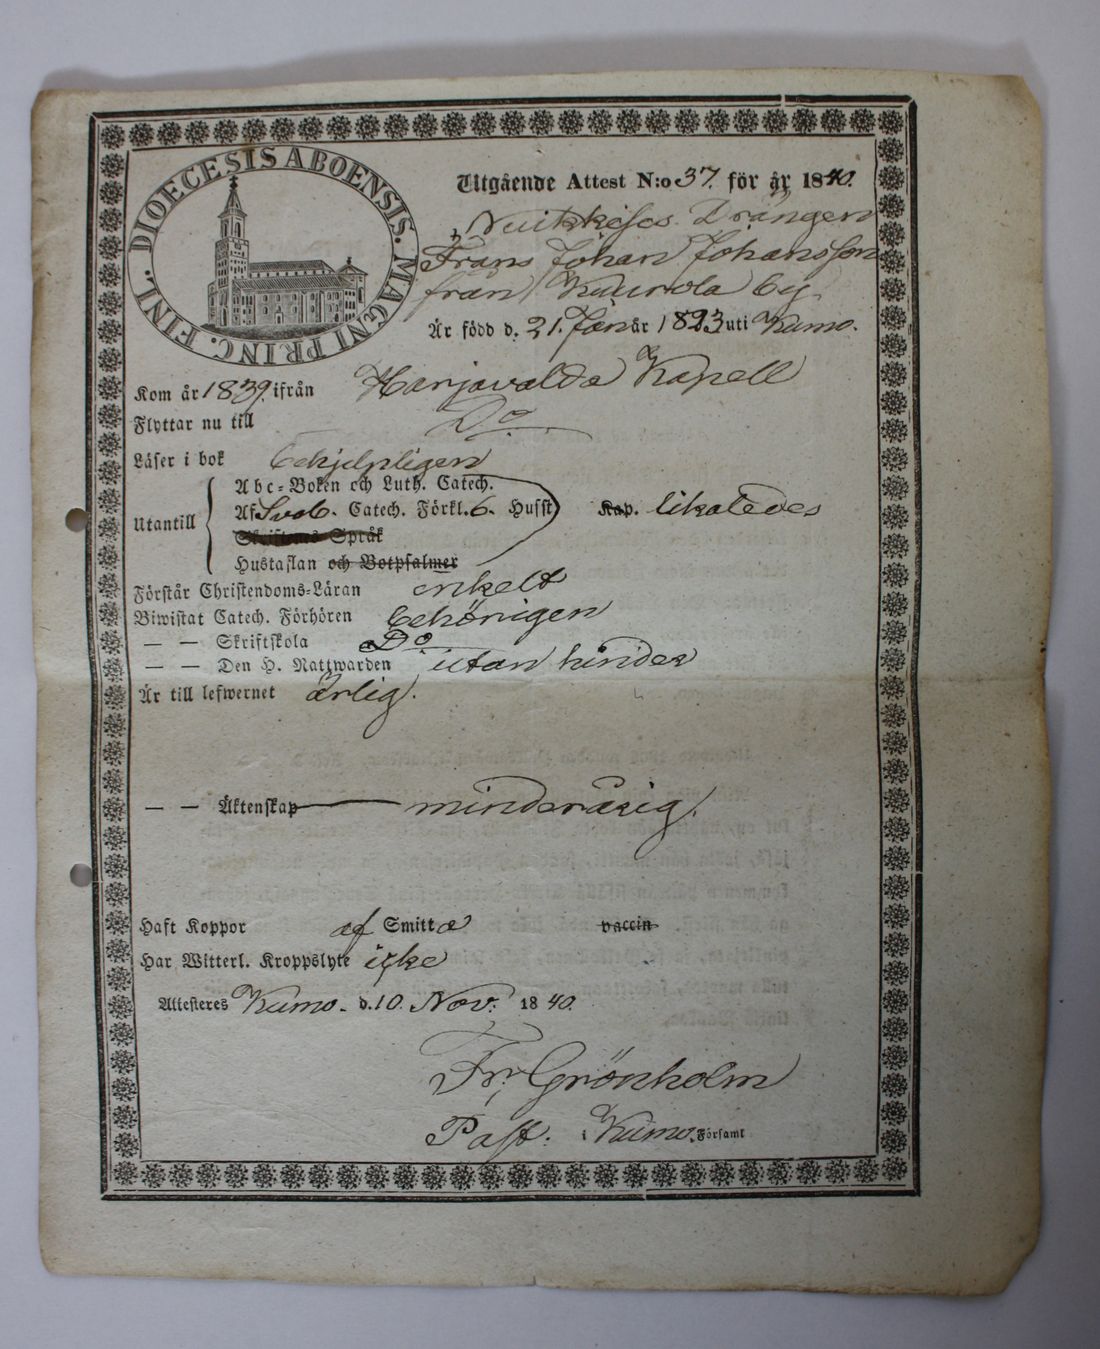 DIOECESIS ABOENSIS. MAGNI PRINC. FINL.
Utgående Attest N:o 37. för år 1840.
Drängen
Frans Johan Johansson
från Kuurola by
Är född d. 21. Jan år 1823 uti Kumo.
Kom år 1839 ifrån Harjavalda Kapell
Flyttar nu till Do
Läser i bok behjelpligen
Abc-Boken och Luth. Catech.
Utantill Af Sveb. Catech. Förkl. 6. Husst Kap. likaledes
Skriftenes Språk
Hustaflan och Botpsalmer
Förstår Christendoms-Läran enkelt
Biwistat Catech. Förhören behörigen
— — Skriftskola Do
— — Den H. Nattwarden utan hinder
Är till lefwernet ärlig.
— — Äktenskap minderårig.
Haft Koppor af Smitta vaccin
Har Witterl. Kroppslyte icke
Attesteres Kumo. d. 10. Nov. 1840.
Fr. Grönholm
Past. i Kumo. Församl